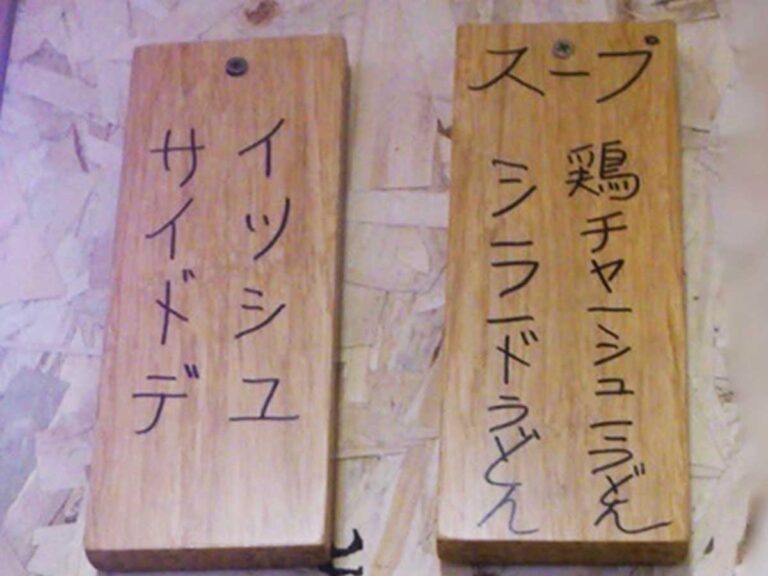 サイドデ
イツシユ
スープ
シーフードうどん
鶏チャーシューうどん